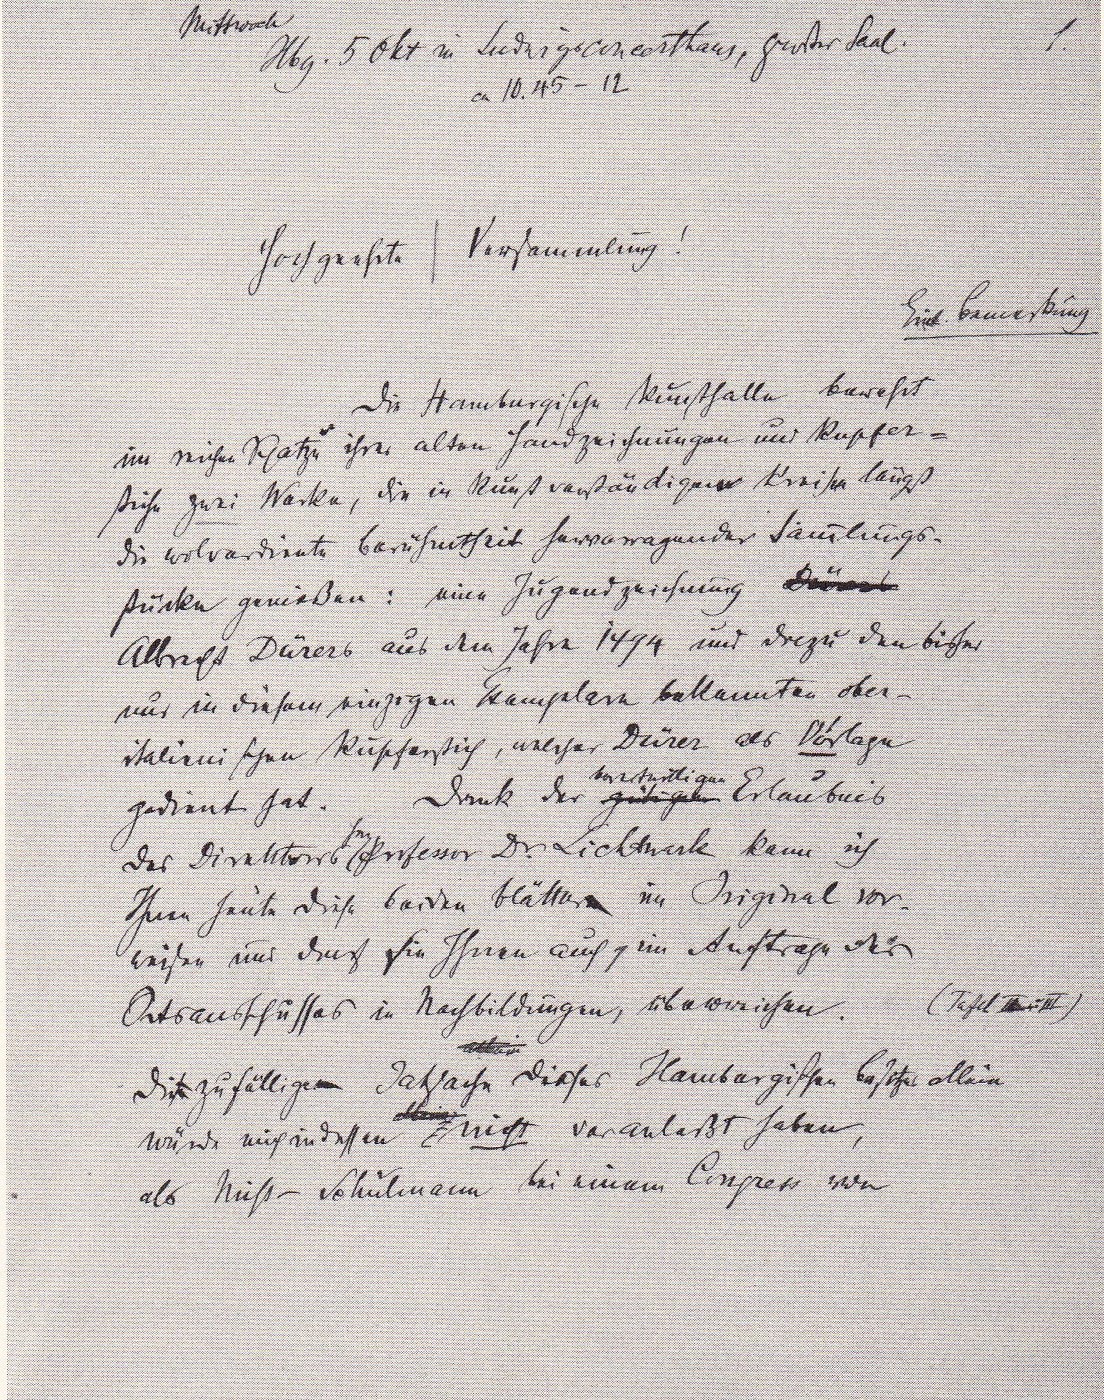 Mittwoch
Hbg. 5 Okt in Ludwigsconcerthaus, großer Saal.
1.
ca 10.45 – 12
Hochgeehrte | Versammlung!
Bemerkung
Die Hamburgische Kunsthalle bewahrt
im reichen Schatze ihrer alten Handzeichnungen und Kupfer=
stiche zwei Werke, die in kunstverständigen Kreisen längst
die wolverdiente Berühmtheit hervorragender Sammlungs-
stücke genießen: eine Jugendzeichnung Dürers
Albrecht Dürers aus dem Jahre 1494 und dazu den bisher
nur in diesem einzigen Exemplare bekannten ober-
italienischen Kupferstich, welcher Dürer als Vorlage
gedient hat. Dank der gütigen bereitwilligen Erlaubnis
des Direktors Herrn Professor Dr. Lichtwark kann ich
Ihnen heute diese beiden Blätter im Original vor-
weisen und darf sie Ihnen auch, im Auftrage des
Ortsausschusses in Nachbildungen, überreichen. (Tafel II u III)
Die zufällige Tatsache dieses Hamburgischen Besitzes allein
würde mich indessen nicht veranlaßt haben,
als Nicht-Schulmann bei einem Congress von